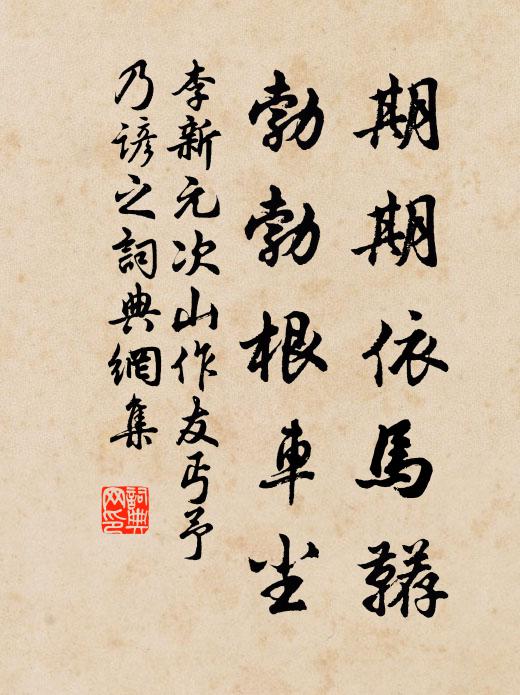 期期依馬韉
勃勃根車尘
李新元次山作友丐予
乃谚之詞典網集
詞典网印